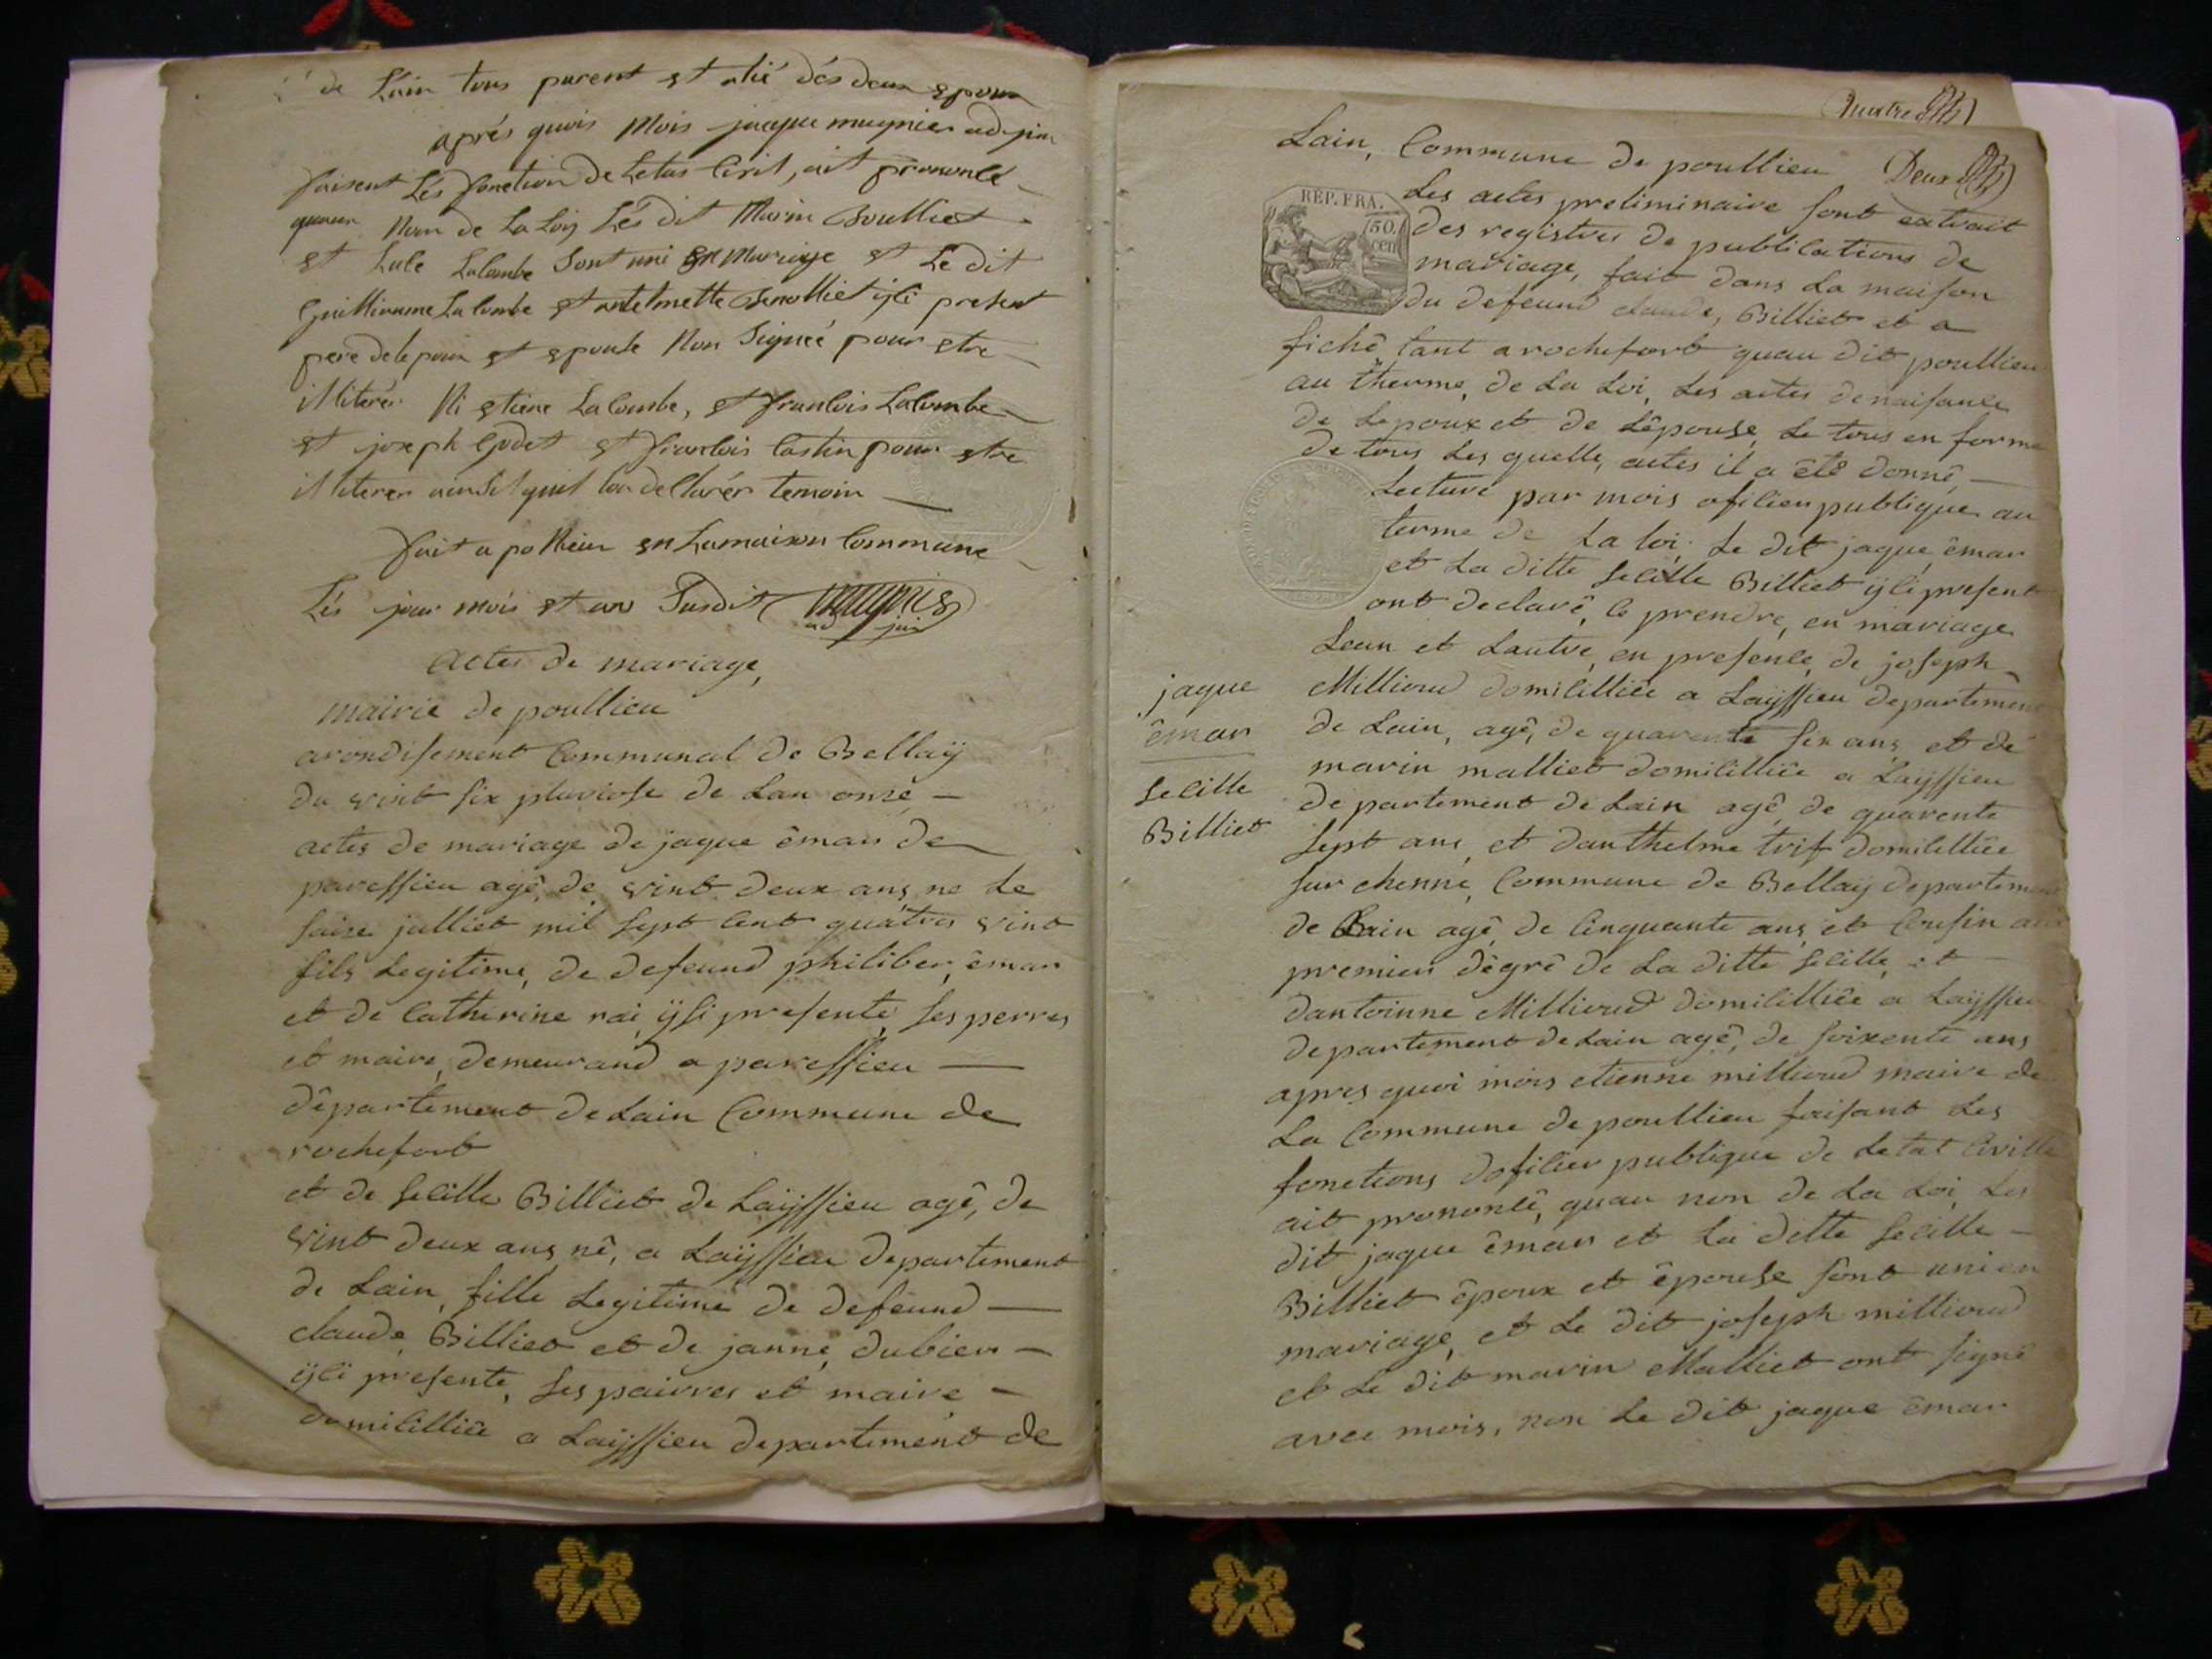 de Lain tous parent et alié dés deux epoux
aprés quois Mois jacque mugnier adjoin
faisent Lés fonction de Letas Civil, ait prononcé
quaux Nom de La Loiy Lés dit Marin Boulliet
et Lalombe Sont uni En Mariage et Le dit
Guilliaume Lalombe et antelmette yli present
pere de lepoux et epouse Non Signéé pour etre
illiterér Ni etiene Lalombe, et franlois Lalombe
et joseph Godet et franlois Castin pour etre
illiterer ainsit quil lon dellarér temoin
fait a pollieu en Lamaison Commune
Lés jour mois et an Susdit mugnier
ad join
actes de mariage,
mairie de poullieu
arondisement Communal de Bellaÿ
du vint six pluviose de Lan onze
actes de mariage de jaque êmar de
paressieu agê, de vint deux ans ne Le
saize julliet mil sept Cent quatres vint
fils Legitime, de defeund philiber êmar
et de Catherine rai ÿsi presente, ses perres
et maire, demeurand a paressieu
dêpartement de Lain Commune de
rochefort
et de selille Billiet de Laÿssieu agê, de
vint deux ans nê, a Laÿssieu departement
de Lain, fille Legitime de defeund
claude, Billiet et de janne, dubier
ÿli presente, ses pairres et maire
domililliée a Laÿssieu departement de
Quatre
Lain, Commune de poullieu Deux
Les actes preliminaire sont extrait
REP. FRA.
50
cen
des registres de publications de
mariage, fait dans La maison
du defeund claude, Billiet et a
fichê tant a rochefort quau dit poullieu
au therme, de La Loi, Les actes de naisanle
de Lepoux et de Lêpouse, Le tous en forme
de tous Les quelle, actes il a êtê donnê
Lecture par mois ofilier publique au
terme de La loi; Le dit jaque êmar
et La ditte selille Billiet ÿli present
ont declarê, ce prendre, en mariage
Leun et Lautre, en presenle, de joseph
jaque
êmar
selille
Billiet
Millioud domililliée a Laÿssieu departement
de Lain, agê, de quarente six ans et de
marin malliet domililliée a Laÿssieu
departement de Lain agê, de quarente
sept ans, et danthelme trif domililliée
sur chenne, Commune de Bellaÿ departement
de Lain agê, de Cinquante ans, et Cousin au
premier dêgrê de La ditte selille, et
dantoinne Millioud domililliée a Laÿssieu
departement de Lain agê, de soixente ans
apres quoi mois etienne millioud maire de
La Commune de poullieu faisant Les
fonctions dofilier publique de Letat Civille
ait prononlê, quau non de La Loi, Les
dit jaque êmar et La ditte selille
Billiet êpoux et êpouse sont uni en
mariage, et Le dit joseph millioud
et Le dit marin Malliet ont signê
avec mois, non Le dit jaque êmar